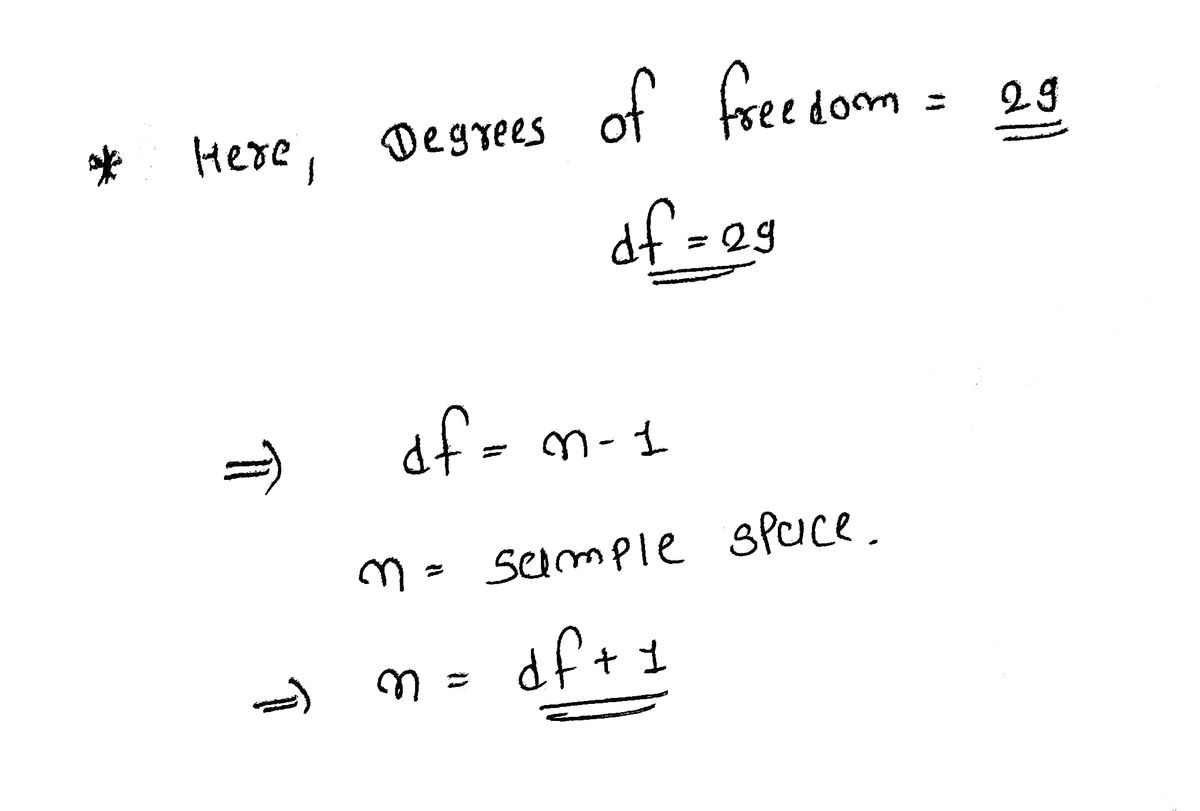 * Here, Degrees of freedom = 29
df = 29
⇒ df = n - 1
n = sample space.
⇒ n = df + 1